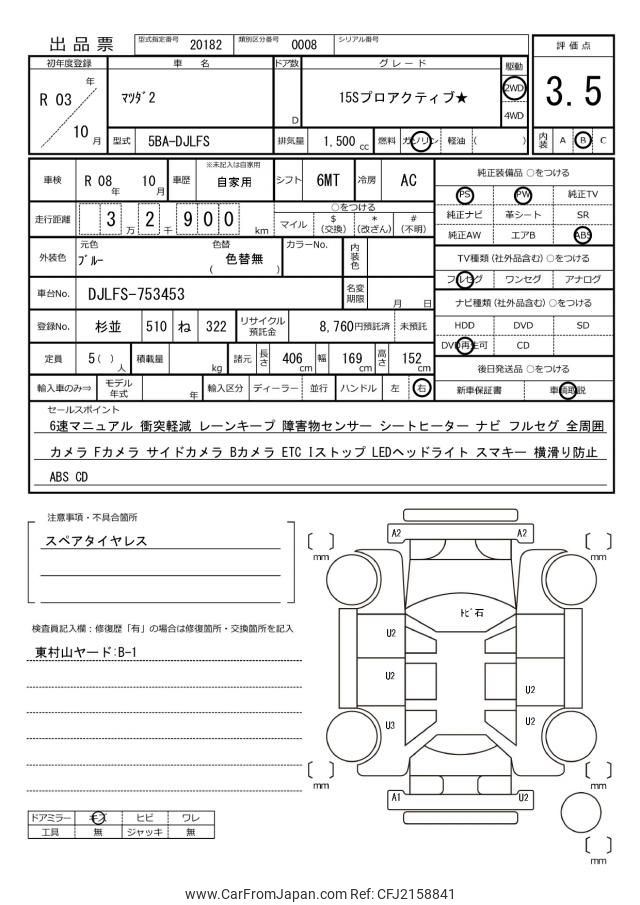 出品票 型式指定番号 20182 類別区分番号 0008 シリアル番号
評価点
3.5
内装 A B C
初年度登録 車名 ドア数 グレード 駆動
R 03 年 10 月
マツダ2 D 15Sプロアクティブ★ 2WD
4WD
型式 5BA-DJLFS 排気量 1,500 cc 燃料 ガソリン 軽油 ( )
車検 R 08 年 10 月 車歴 ※未記入は自家用 自家用 シフト 6MT 冷房 AC
走行距離 3 万 2 千 9 0 0 km
○をつける
マイル $ (交換) * (改ざん) # (不明)
外装色 元色 ブルー 色替 ( 色替無 ) カラーNo. 内装色
車台No. DJLFS-753453 名変期限 月 日
登録No. 杉並 510 ね 322 リサイクル預託金 8,760円預託済 未預託
定員 5( ) 人 積載量 kg 諸元 長さ 406 cm 幅 169 cm 高さ 152 cm
輸入車のみ⇒ モデル年式 年 輸入区分 ディーラー 並行 ハンドル 左 右
純正装備品 ○をつける
PS PW 純正TV
純正ナビ 革シート SR
純正AW エアB ABS
TV種類(社外品含む) ○をつける
フルセグ ワンセグ アナログ
ナビ種類(社外品含む) ○をつける
HDD DVD SD
DVD再生可 CD
後日発送品 ○をつける
新車保証書 車輌取説
セールスポイント
6速マニュアル 衝突軽減 レーンキープ 障害物センサー シートヒーター ナビ フルセグ 全周囲
カメラ Fカメラ サイドカメラ Bカメラ ETC Iストップ LEDヘッドライト スマキー 横滑り防止
ABS CD
注意事項・不具合箇所
スペアタイヤレス
検査員記入欄：修復歴「有」の場合は修復箇所・交換箇所を記入
東村山ヤード:B-1
ドアミラー キズ ヒビ ワレ
工具 無 ジャッキ 無
A2 A2
mm mm
トビ石
U2
U2 U2
U3 U2
mm mm
A1 U2
mm
www.CarFromJapan.com Ref: CFJ2158841